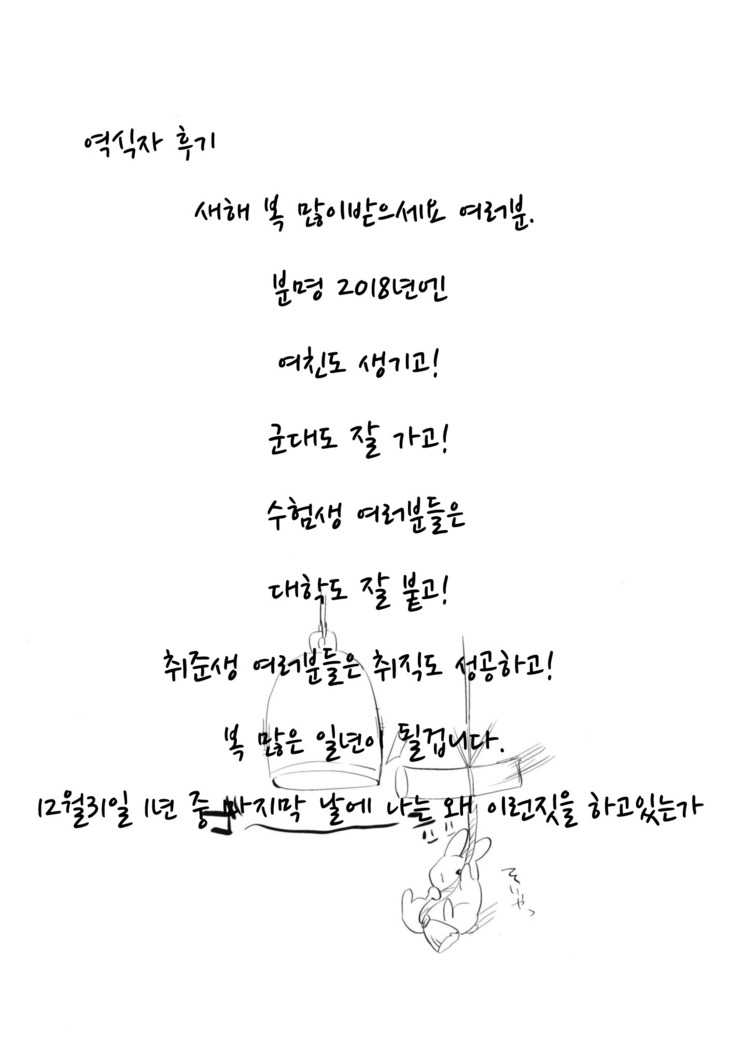 역식자 후기
새해 복 많이받으세요 여러분.
분명 2018년엔
여친도 생기고!
군대도 잘 가고!
수험생 여러분들은
대학도 잘 붙고!
취준생 여러분들은 취직도 성공하고!
복 많은 일년이 될겁니다.
12월31일 1년 중 마지막 날에 나는 왜 이런짓을 하고있는가
そいやっ